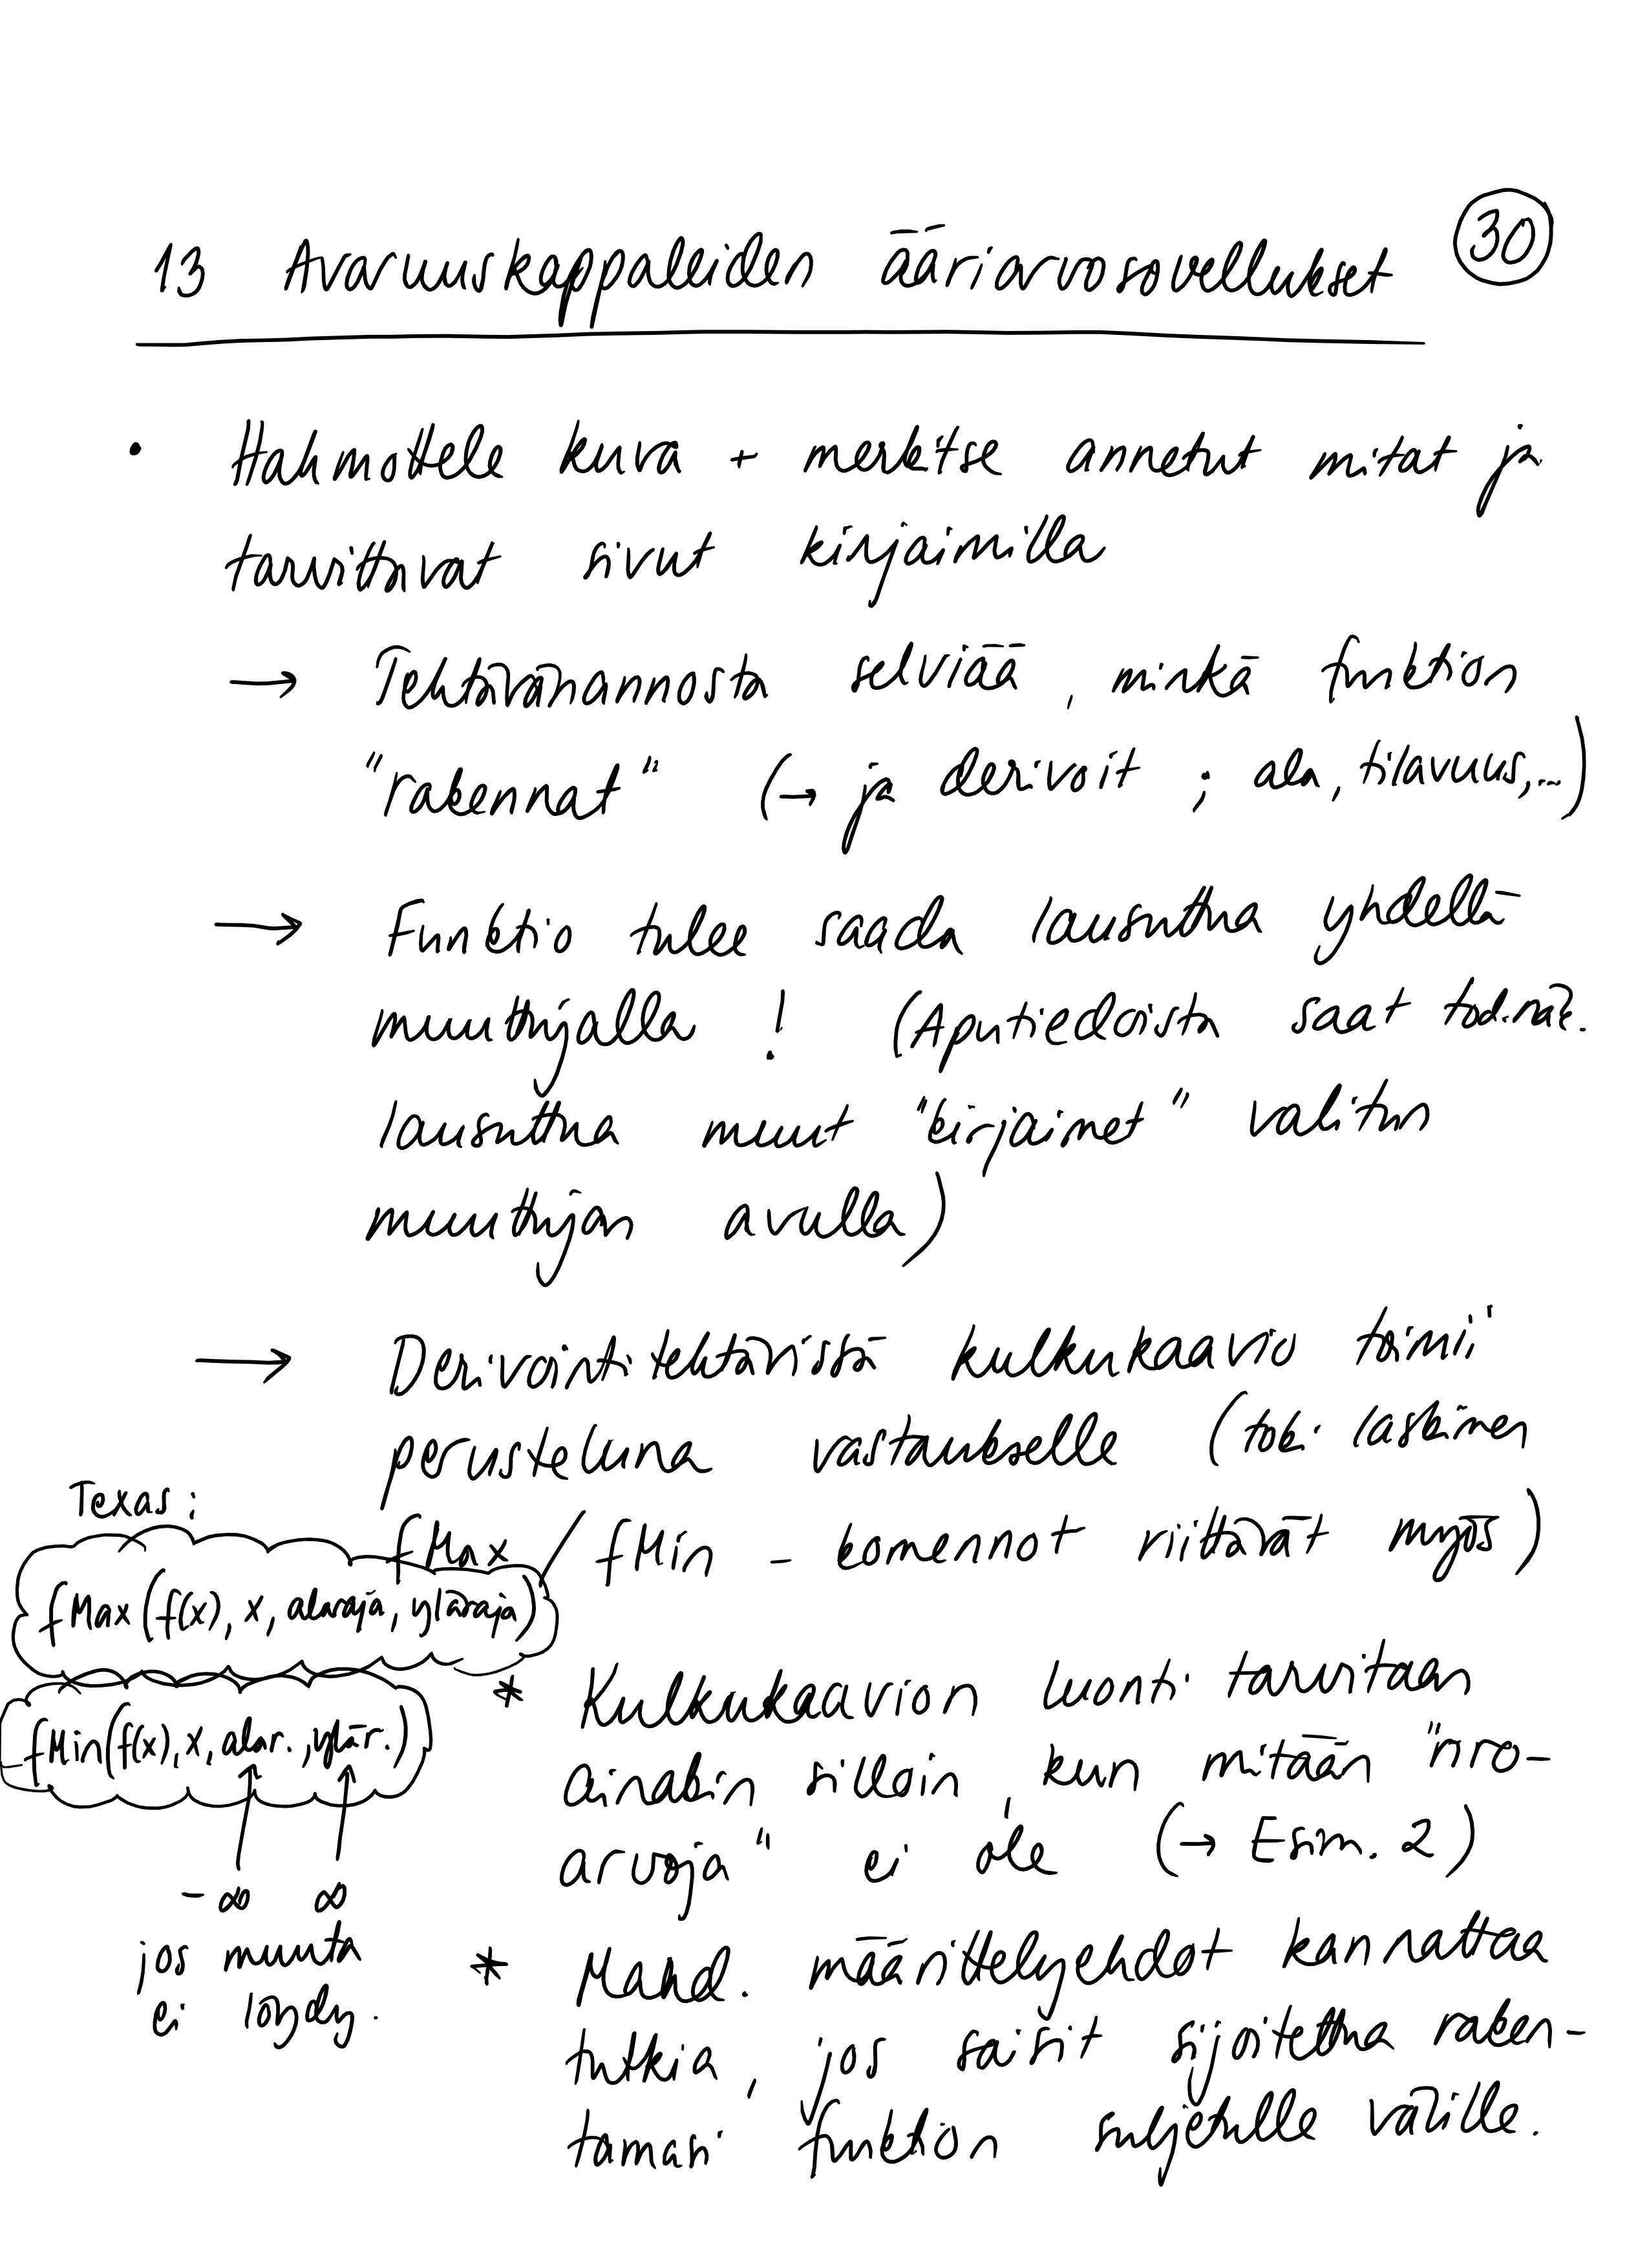 30
13 Avaruuskappaleiden ääriarvosovellukset
• Hahmottele kuva + merkitse annetut mitat ja
tarvittavat sivut kirjaimilla
→ Tehtävänannosta selviää, minkä funktion
"rakennat" (→ ja derivoit ; ala, tilavuus,...)
→ Funktio tulee saada lausuttua yhdellä
muuttujalla ! (Aputiedoista saat tod.näk.
lausuttua muut "kirjaimet" valitun
muuttujan avulla)
→ Derivointitehtävissä kulkukaavio toimii
perusteluna vastaukselle (toki laskimen
fMax / fMin - komennot riittävät myös)
Texas :
fMax(f(x), x, alaraja, yläraja)
fMin(f(x), x, alar., ylär.)
-∞ ∞
jos muuta
ei löydy.
* Kulkukaavion luonti tarvitaan
ainakin silloin, kun mitään "nro-
arvoja" ei ole (→ Esim. 2)
* Mahd. määrittelyehdot kannattaa
tutkia, jos saisit sijoitettua raken-
tamasi funktion suljetulle välille.